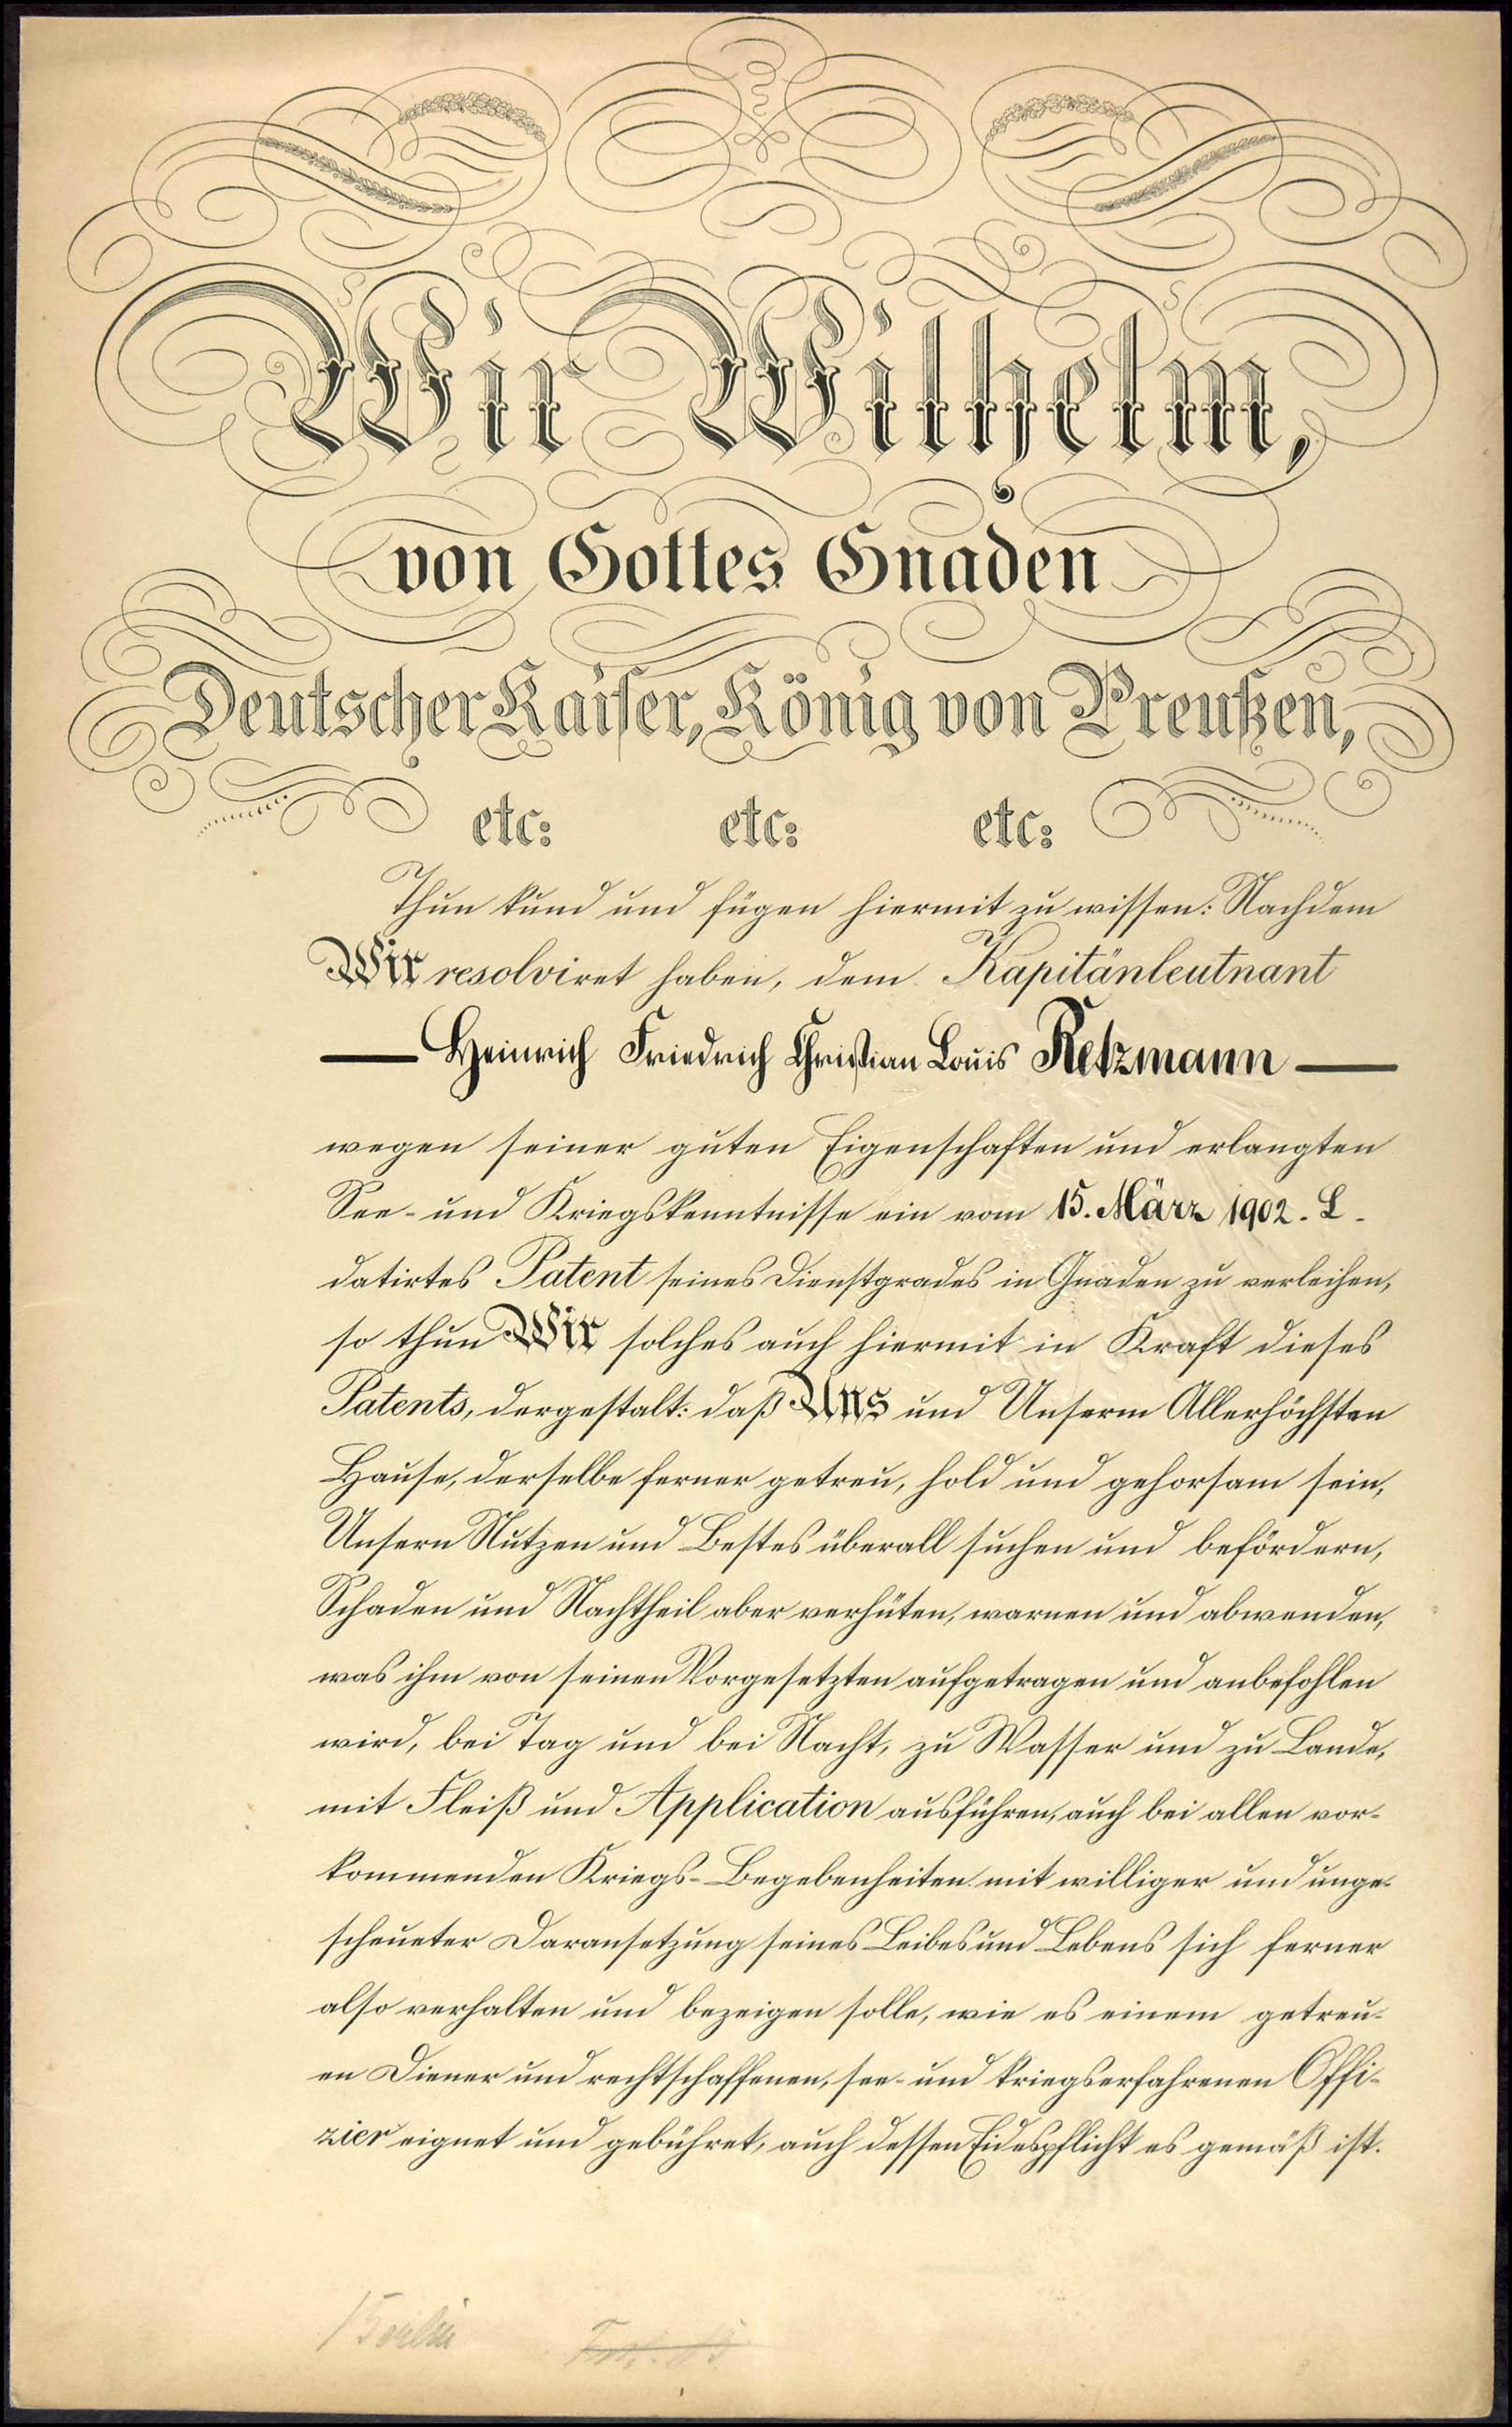 Wir Wilhelm,
von Gottes Gnaden
Deutscher Kaiser, König von Preußen,
etc: etc: etc:
Thun kund und fügen hiermit zu wissen: Nachdem
Wir resolviret haben, dem Kapitänleutnant
Heinrich Friedrich Christian Louis Retzmann
wegen seiner guten Eigenschaften und erlangten
See- und Kriegskenntnisse ein vom 15. März 1902. L.
datirtes Patent seines Dienstgrades in Gnaden zu verleihen,
so thun Wir solches auch hiermit in Kraft dieses
Patents, dergestalt: daß Uns und Unserm Allerhöchsten
Hause, derselbe ferner getreu, hold und gehorsam sein,
Unsern Nutzen und Bestes überall suchen und befördern,
Schaden und Nachtheil aber verhüten, warnen und abwenden,
was ihm von seinen Vorgesetzten aufgetragen und anbefohlen
wird, bei Tag und bei Nacht, zu Wasser und zu Lande,
mit Fleiß und Application ausführen, auch bei allen vor-
kommenden Kriegs-Begebenheiten mit williger und unge-
scheueter Daransetzung seines Leibes und Lebens sich ferner
also verhalten und bezeigen solle, wie es einem getreu-
en Diener und rechtschaffenen, see- und kriegserfahrenen Offi-
zier eignet und gebühret, auch dessen Eidespflicht es gemäß ist.
Berlin